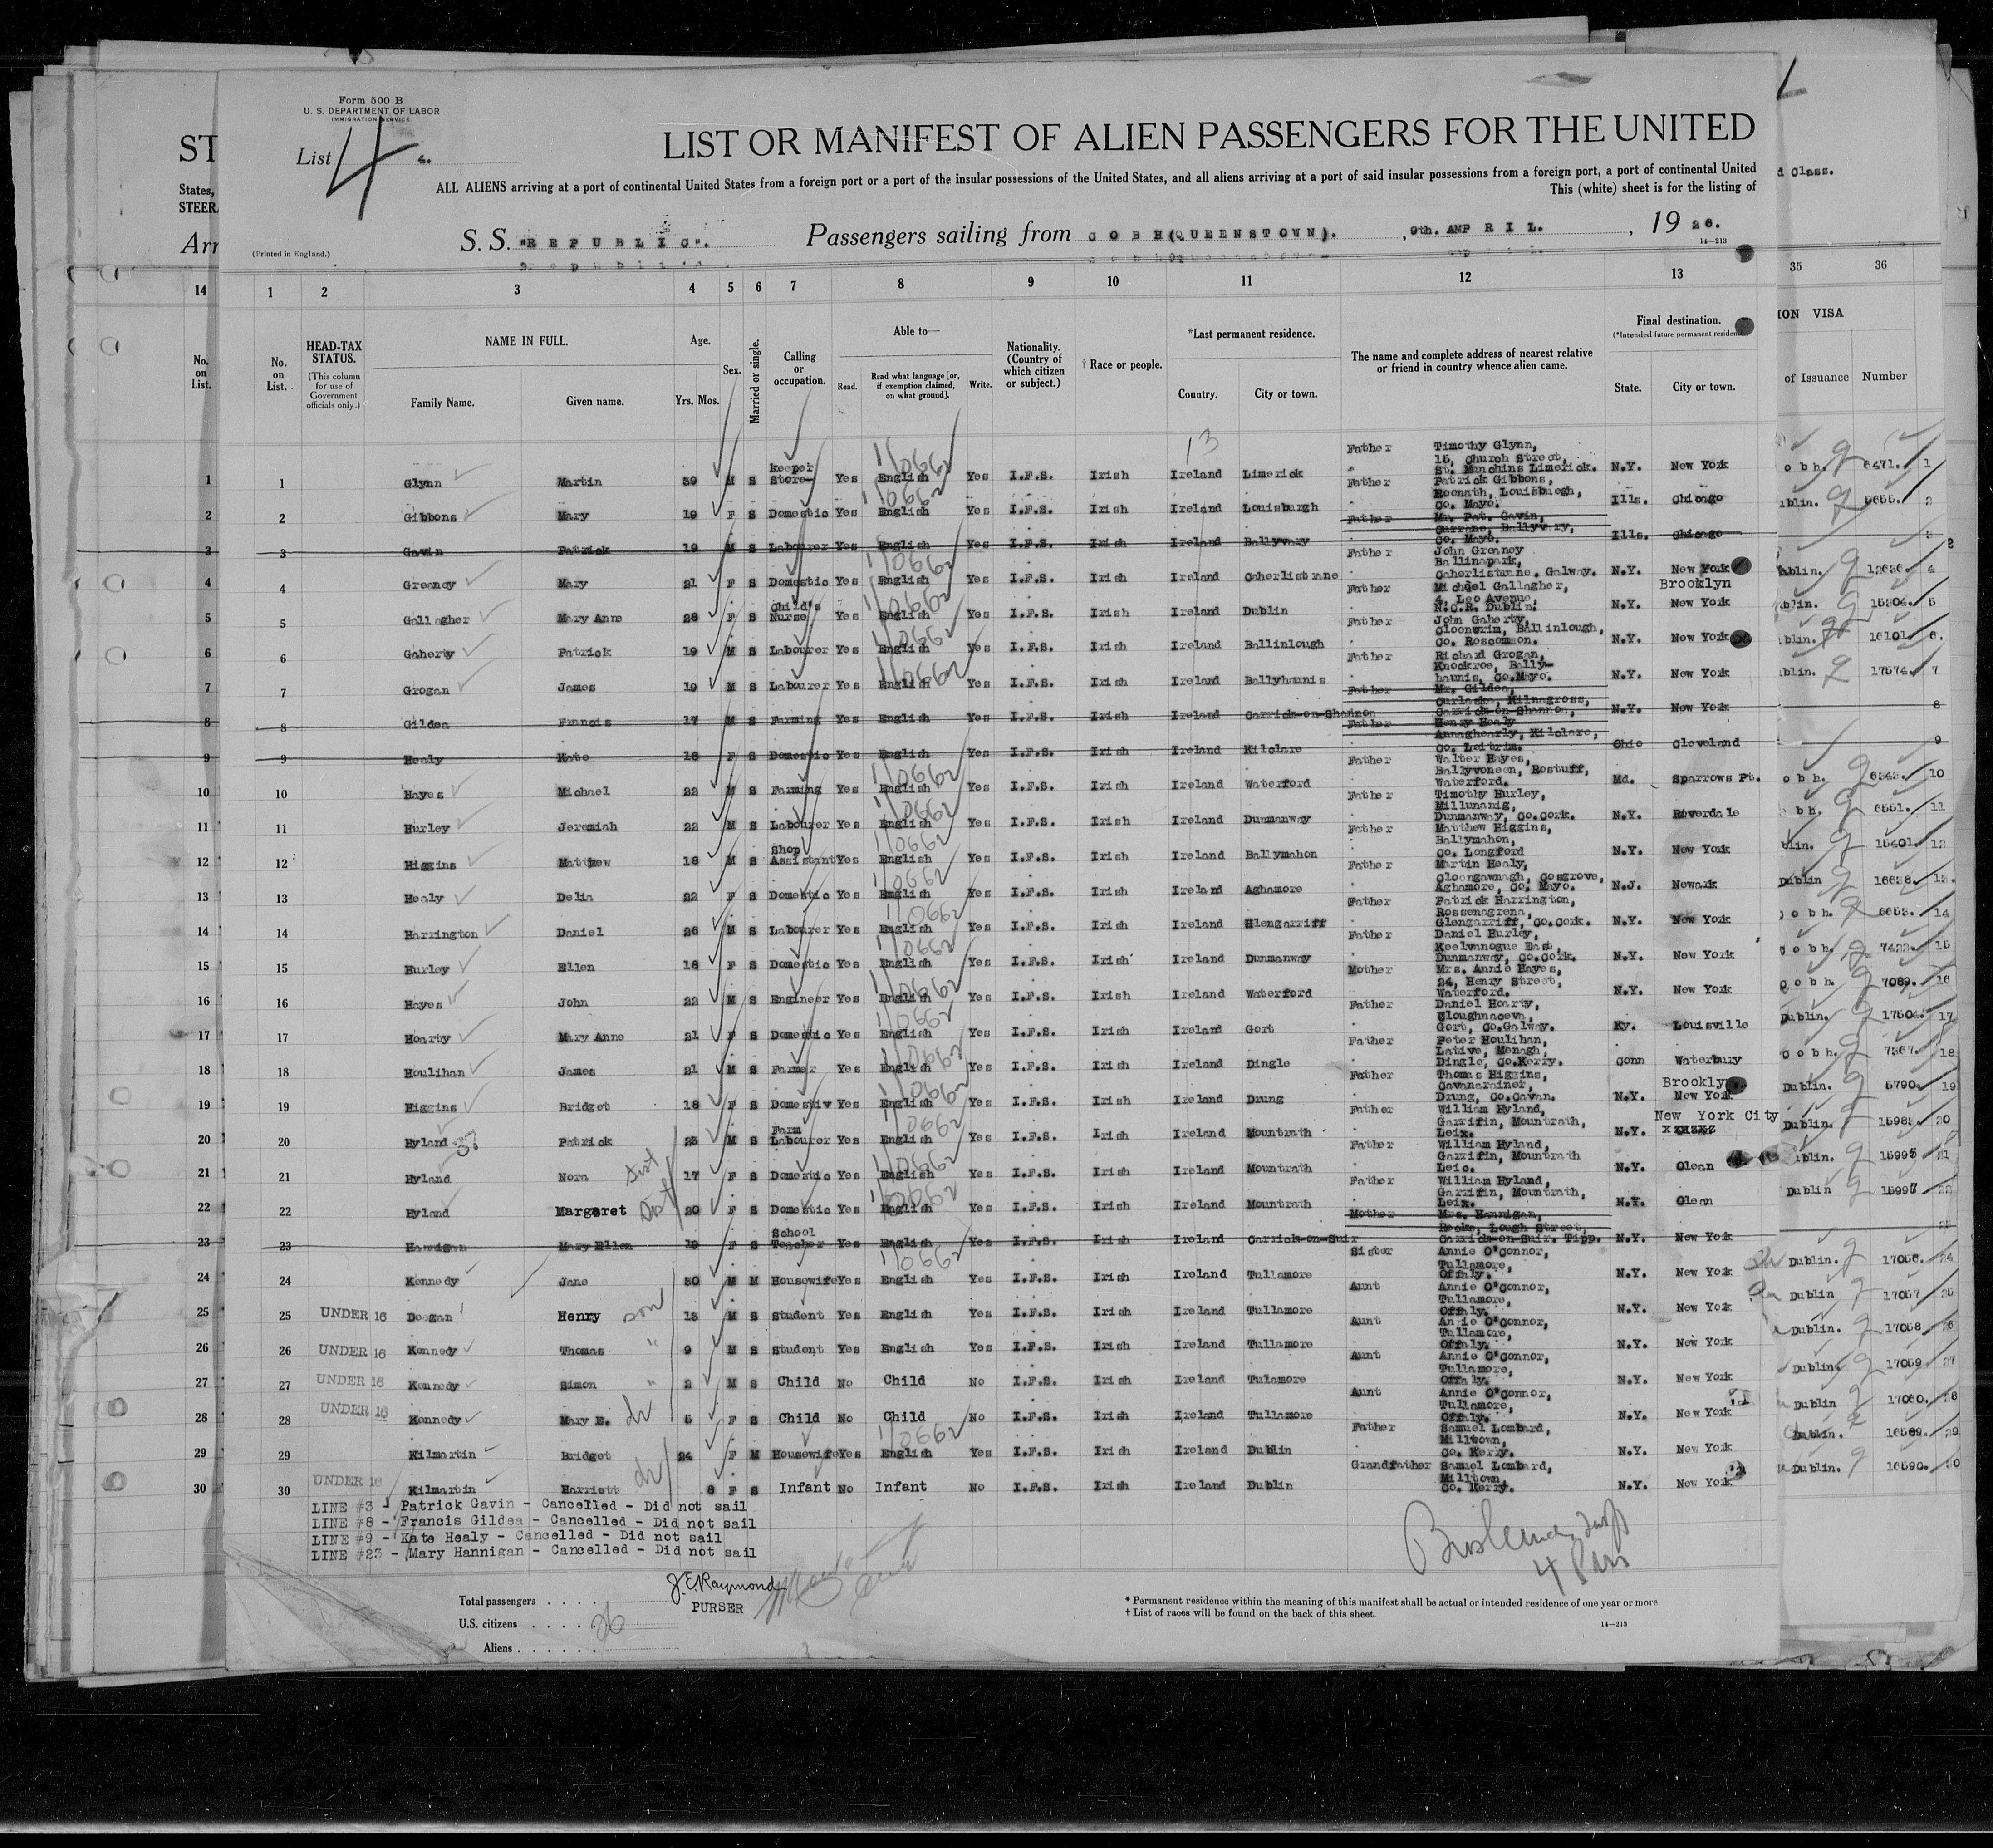 Form 500 B
U. S. DEPARTMENT OF LABOR
IMMIGRATION SERVICE
List 4 4.
LIST OR MANIFEST OF ALIEN PASSENGERS FOR THE UNITED
ALL ALIENS arriving at a port of continental United States from a foreign port or a port of the insular possessions of the United States, and all aliens arriving at a port of said insular possessions from a foreign port, a port of continental United
This (white) sheet is for the listing of
S. S. "REPUBLIC". Passengers sailing from COBH(QUEENSTOWN). , 9th. APRIL. , 1926.
(Printed in England.)
14—213
1 2 3 4 5 6 7 8 9 10 11 12 13
No. on List. HEAD-TAX STATUS. (This column for use of Government officials only.) NAME IN FULL. Family Name. Given name. Age. Yrs. Mos. Sex. Married or single. Calling or occupation. Able to— Read. Read what language [or, if exemption claimed, on what ground]. Write. Nationality. (Country of which citizen or subject.) † Race or people. *Last permanent residence. Country. City or town. The name and complete address of nearest relative or friend in country whence alien came. Final destination. (*Intended future permanent residence) State. City or town.
1 Glynn Martin 39 M S Store-keeper Yes English Yes I.F.S. Irish Ireland Limerick Father Timothy Glynn, 15, Church Street, St. Munchins Limerick. N.Y. New York
2 Gibbons Mary 19 F S Domestic Yes English Yes I.F.S. Irish Ireland Louisburgh Father Patrick Gibbons, Roonath, Louisburgh, Co. Mayo. Ills. Chicago
3 Gavin Patrick 19 M S Labourer Yes English Yes I.F.S. Irish Ireland Ballyvary Father Mr. Pat. Gavin, Currane, Ballyvary, Co. Mayo. Ills. Chicago
4 Greaney Mary 21 F S Domestic Yes English Yes I.F.S. Irish Ireland Caherlistrane Father John Greaney Ballinapark, Caherlistrane. Galway. N.Y. New York
5 Gallagher Mary Anne 28 F S Child's Nurse Yes English Yes I.F.S. Irish Ireland Dublin Father Michael Gallagher, 4, Leo Avenue, N.C.R. Dublin. N.Y. Brooklyn New York
6 Gaherty Patrick 19 M S Labourer Yes English Yes I.F.S. Irish Ireland Ballinlough Father John Gaherty, Cloonrim, Ballinlough, Co. Roscommon. N.Y. New York
7 Grogan James 19 M S Labourer Yes English Yes I.F.S. Irish Ireland Ballyhaunis Father Richard Grogan, Knockroe, Bally-haunis, Co.Mayo. N.Y. New York
8 Gildea Francis 17 M S Farming Yes English Yes I.F.S. Irish Ireland Carrick-on-Shannon Father Mr. Gildea, Curlaska, Kilnagross, Carrick-on-Shannon, N.Y. New York
9 Healy Kate 18 F S Domestic Yes English Yes I.F.S. Irish Ireland Kilclare Father Henry Healy Annaghearly, Kilclare, Co. Leitrim. Ohio Cleveland
10 Hayes Michael 22 M S Farming Yes English Yes I.F.S. Irish Ireland Waterford Father Walter Hayes, Ballyvoneen, Rostuff, Waterford. Md. Sparrows Pt.
11 Hurley Jeremiah 22 M S Labourer Yes English Yes I.F.S. Irish Ireland Dunmanway Father Timothy Hurley, Millunanig, Dunmanway, Co.Cork. N.Y. Riverdale
12 Higgins Matthew 18 M S Shop Assistant Yes English Yes I.F.S. Irish Ireland Ballymahon Father Matthew Higgins, Ballymahon, Co. Longford N.Y. New York
13 Healy Delia 22 F S Domestic Yes English Yes I.F.S. Irish Ireland Aghamore Father Martin Healy, Cloongawnagh, Cosgrove, Aghamore, Co. Mayo. N.J. Newark
14 Harrington Daniel 26 M S Labourer Yes English Yes I.F.S. Irish Ireland Glengarriff Father Patrick Harrington, Rossenagrena, Glengarriff, Co.Cork. N.Y. New York
15 Hurley Ellen 18 F S Domestic Yes English Yes I.F.S. Irish Ireland Dunmanway Father Daniel Hurley, Keelvanogue East, Dunmanway, Co.Cork. N.Y. New York
16 Hayes John 22 M S Engineer Yes English Yes I.F.S. Irish Ireland Waterford Mother Mrs. Annie Hayes, 24, Henry Street, Waterford. N.Y. New York
17 Hearty Mary Anne 21 F S Domestic Yes English Yes I.F.S. Irish Ireland Gort Father Daniel Hearty, Cloughnaceva, Gort, Co.Galway. Ky. Louisville
18 Houlihan James 21 M S Farmer Yes English Yes I.F.S. Irish Ireland Dingle Father Peter Houlihan, Lative, Menagh, Dingle, Co.Kerry. Conn Waterbury
19 Higgins Bridget 18 F S Domestiv Yes English Yes I.F.S. Irish Ireland Drung Father Thomas Higgins, Cavanarainer, Drung, Co.Cavan. N.Y. Brooklyn New York
20 Hyland Patrick 25 M S Farm Labourer Yes English Yes I.F.S. Irish Ireland Mountrath Father William Hyland, Garrifin, Mountrath, Leix. N.Y. New York City
21 Hyland Nora Sist 17 F S Domestic Yes English Yes I.F.S. Irish Ireland Mountrath Father William Hyland, Garrifin, Mountrath Leic. N.Y. Olean
22 Hyland Margaret Sist 20 F S Domestic Yes English Yes I.F.S. Irish Ireland Mountrath Father William Hyland, Garrifin, Mountrath, Leix. N.Y. Olean
23 Hannigan Mary Ellen 19 F S School Teacher Yes English Yes I.F.S. Irish Ireland Carrick-on-Suir Mother Mrs. Hannigan, Rocks, Lough Street, Carrick-on-Suir. Tipp. N.Y. New York
24 Kennedy Jane 30 M M Housewife Yes English Yes I.F.S. Irish Ireland Tullamore Sister Annie O'Connor, Tullamore, Offaly. N.Y. New York
25 UNDER 16 Deegan Henry son 15 M S Student Yes English Yes I.F.S. Irish Ireland Tullamore Aunt Annie O'Connor, Tullamore, Offaly. N.Y. New York
26 UNDER 16 Kennedy Thomas " 9 M S Student Yes English Yes I.F.S. Irish Ireland Tullamore Aunt Annie O'Connor, Tullamore, Offaly. N.Y. New York
27 UNDER 16 Kennedy Simon " 2 M S Child No Child No I.F.S. Irish Ireland Tulamore Aunt Annie O'Connor, Tullamore, Offaly. N.Y. New York
28 UNDER 16 Kennedy Mary E. 5 F S Child No Child No I.F.S. Irish Ireland Tullamore Aunt Annie O'Connor, Tullamore, Offaly. N.Y. New York
29 Kilmartin Bridget 24 F M Housewife Yes English Yes I.F.S. Irish Ireland Dublin Father Samuel Lombard, Milltown, Co. Kerry. N.Y. New York
30 UNDER 16 Kilmartin Harriett 8 F S Infant No Infant No I.F.S. Irish Ireland Dublin Grandfather Samuel Lombard, Milltown, Co. Kerry. N.Y. New York
LINE #3 - Patrick Gavin - Cancelled - Did not sail
LINE #8 - Francis Gildea - Cancelled - Did not sail
LINE #9 - Kate Healy - Cancelled - Did not sail
LINE #23 - Mary Hannigan - Cancelled - Did not sail
J.E.Raymond
PURSER
Total passengers . . . .
U.S. citizens . . . . . 26
Aliens . . . . . .
* Permanent residence within the meaning of this manifest shall be actual or intended residence of one year or more
† List of races will be found on the back of this sheet.
14—213
ST
States,
STEER
Arr
14
No. on List.
d Class.
35 36
ION VISA
of Issuance Number